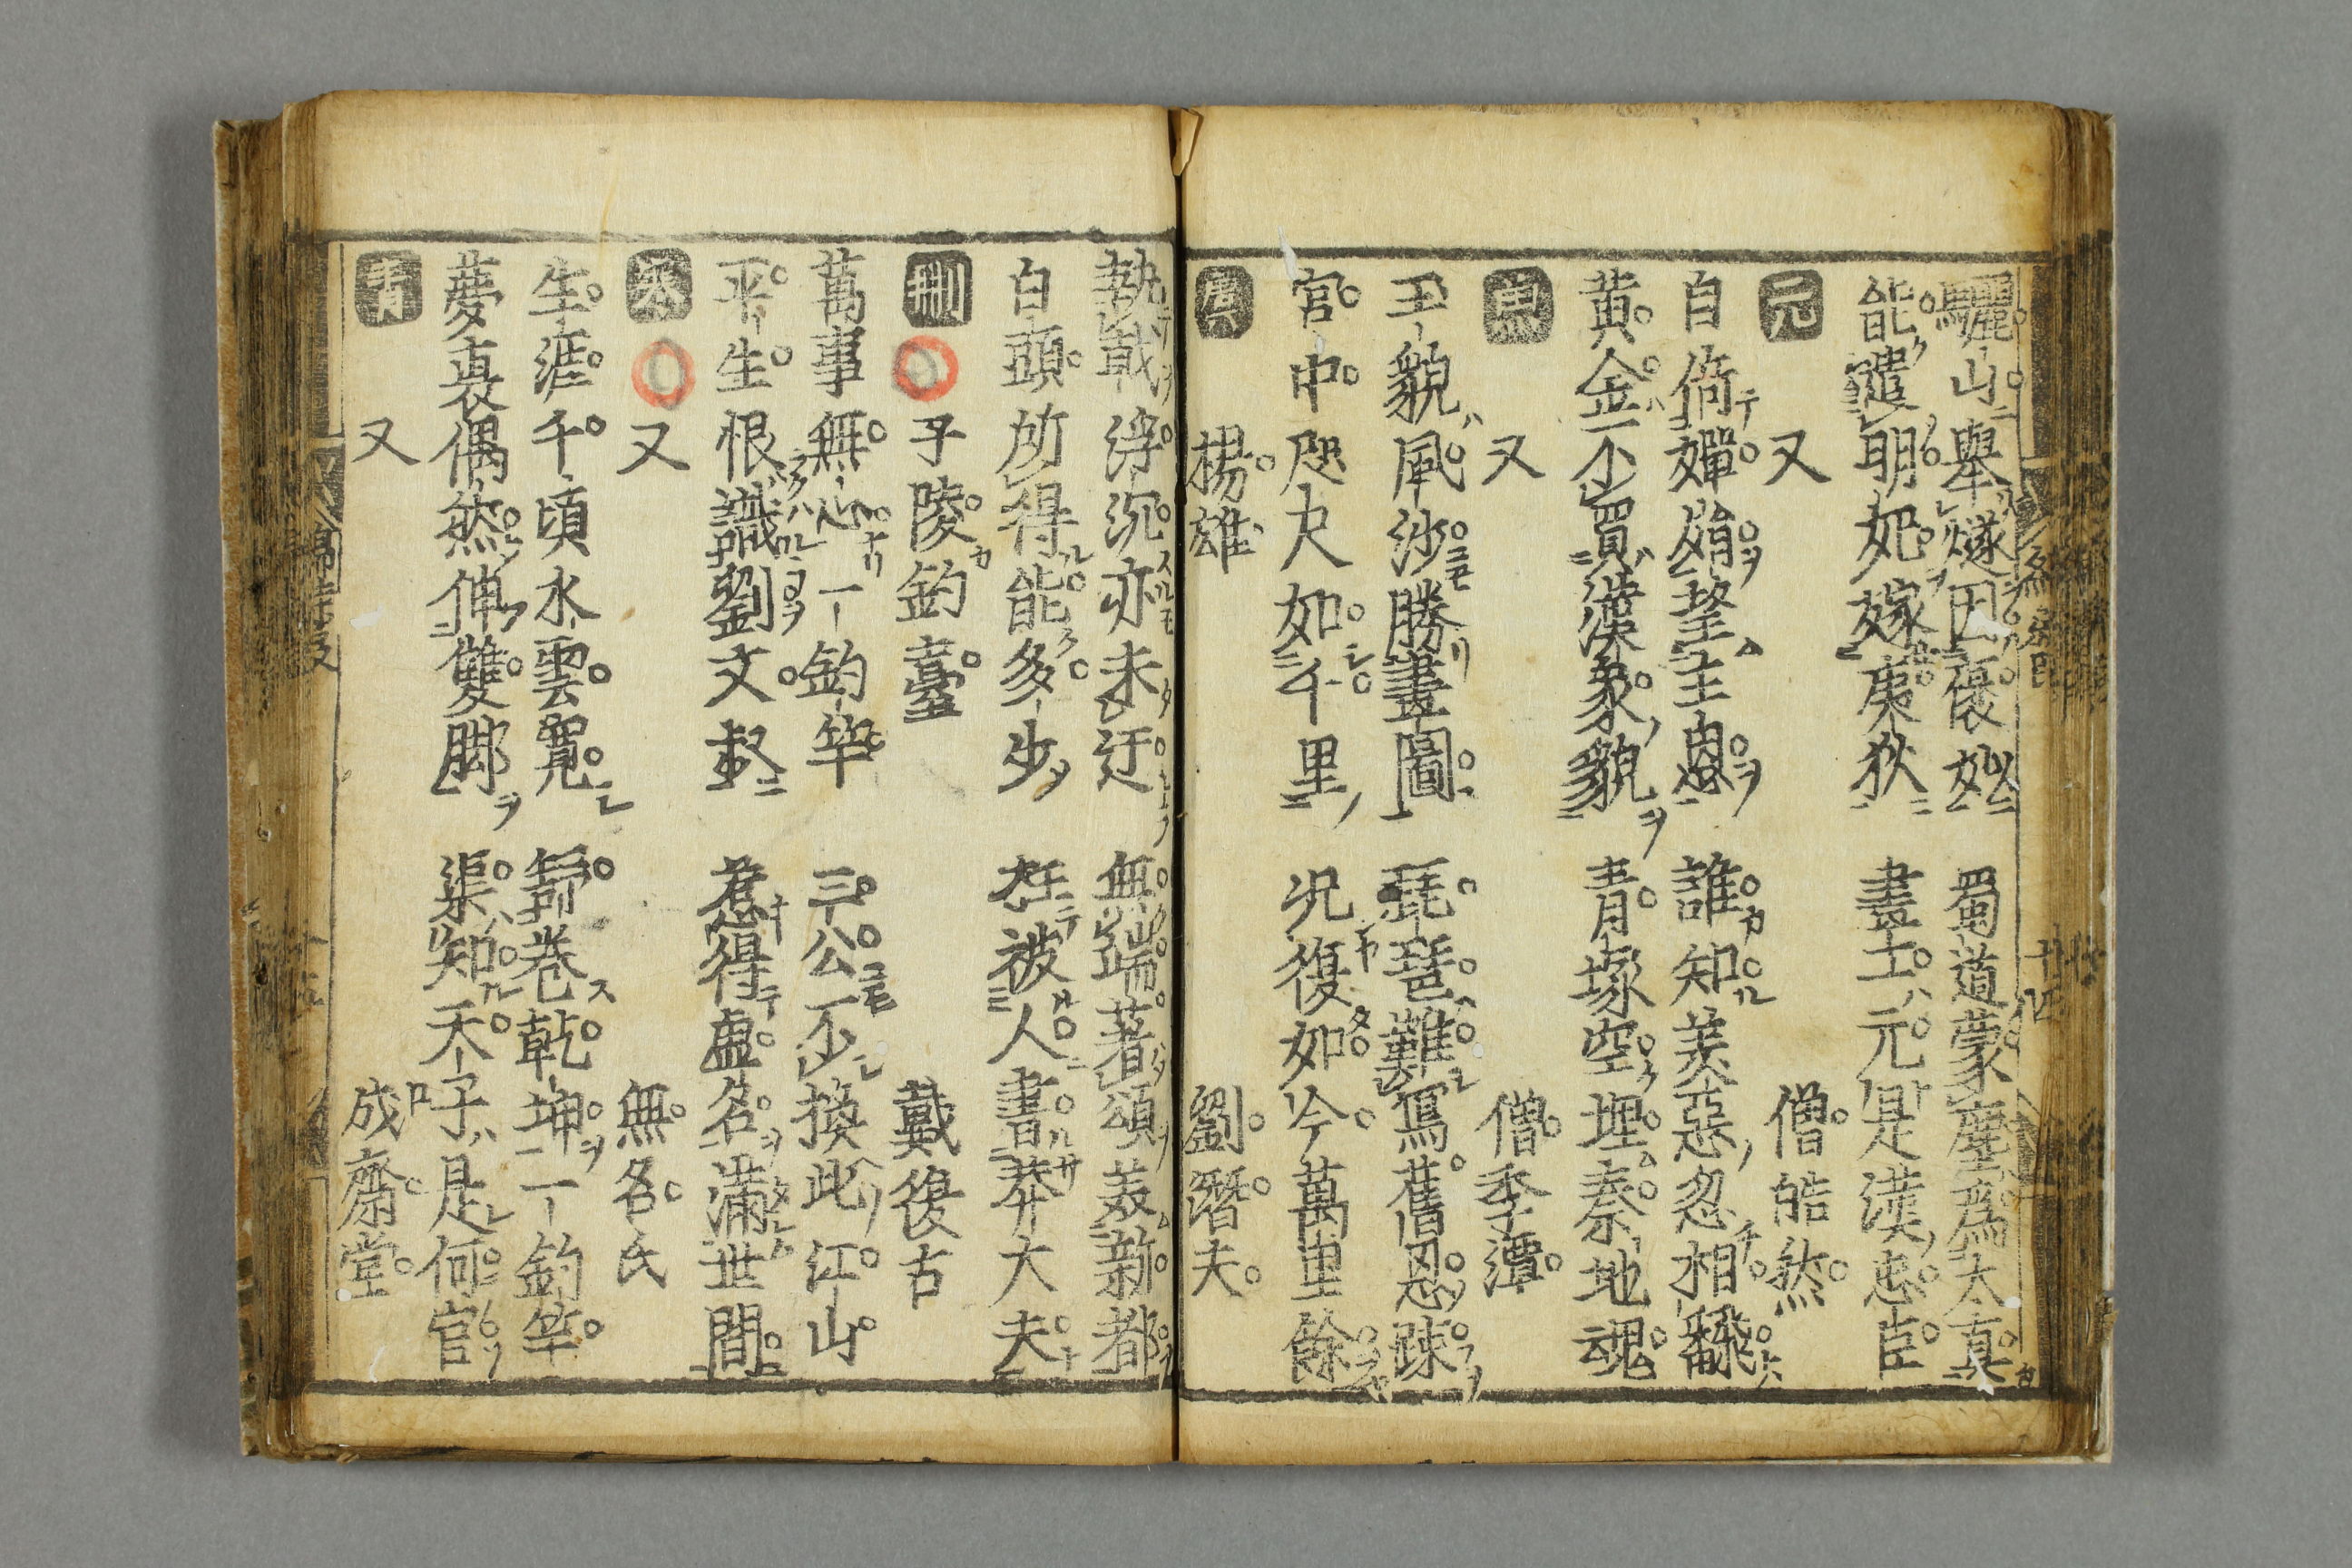 驪山擧燧因褒姒　蜀道蒙塵爲太真
能遣明妃嫁虜狄　畫士元是漢忠臣
元　又　僧皓然
自倚嬋娟望主恩　誰知美惡忽相翻
黄金不買漢宮貌　青塚空埋秦地魂
又　僧季潭
玉貌風沙勝畫圖　琵琶難寫舊恩疎
宮中咫尺如千里　况復如今萬里餘
楊雄　劉潛夫
執戟浮沉亦未迂　無端著頌美新都
白頭所得能多少　枉被人書莽大夫
子陵釣臺　戴復古
萬事無心一釣竿　三公不換此江山
平生恨識劉文叔　惹得虚名滿世間
又　無名氏
生涯千頃水雲寬　舒卷乾坤一釣竿
夢裏偶然伸雙脚　渠知天子是何官
又　成齋堂